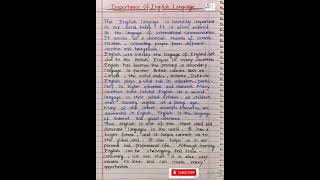 Importance Of English Language
The English language is incredibly important
in our world today. It is often referred
to the language of international communication.
It serves as a universal means of commu-
nication, connecting people from different
countries and backgrounds.
English was initially the language of England but
due to the British Empire in many countries
English has become the primary or secondary
language in former British colonies such as
Canada, the United States, Srilanka, India etc.
English plays a vital role in education, parti-
in higher education and research. Many
countries have included English as a second
language in their school syllabus, so children
start learning English at a young age.
Many of the latest scientific discoveries are
documented in English. English is the language
of Internet and global commerce.
Thus English is one of the most used and
dominant language in the world. It has a
future, and it helps connect us to
the global world. It also helps us in our
personal and professional life. Although learning
English can be challenging and time
consuming, we see that it is also very
valuable to learn and can create many
opportunities.
SUBSCRIBE